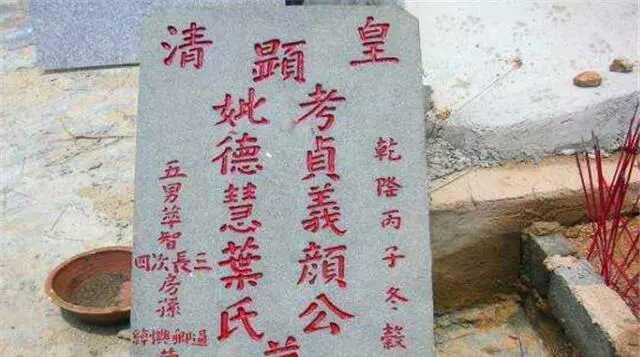 皇清
顯
乾隆丙子冬穀
考貞義顏公
妣德慧葉氏
五男智
三長次四
房孫